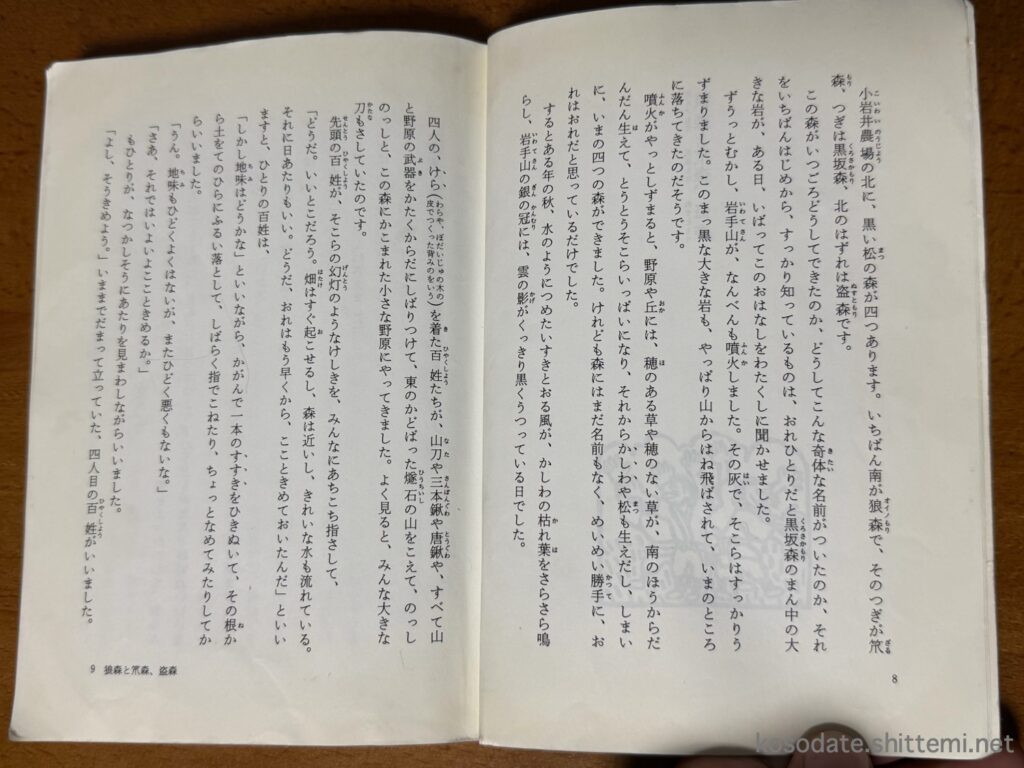 小岩井農場の北に、黒い松の森が四つあります。いちばん南が狼森で、そのつぎが笊
森、つぎは黒坂森、北のはずれは盗森です。
この森がいつごろどうしてできたのか、どうしてこんな奇体な名前がついたのか、それ
をいちばんはじめから、すっかり知っているものは、おれひとりだと黒坂森のまん中の大
きな岩が、ある日、いばってこのおはなしをわたくしに聞かせました。
ずうっとむかし、岩手山が、なんべんも噴火しました。その灰で、そこらはすっかりう
ずまりました。このまっ黒な大きな岩も、やっぱり山からはね飛ばされて、いまのところ
に落ちてきたのだそうです。
噴火がやっとしずまると、野原や丘には、穂のある草や穂のない草が、南のほうからだ
んだん生えて、とうとうそこらいっぱいになり、それからかしわや松も生えだし、しまい
に、いまの四つの森ができました。けれども森にはまだ名前もなく、めいめい勝手に、お
れはおれだと思っているだけでした。
するとある年の秋、水のようにつめたいすきとおる風が、かしわの枯れ葉をさらさら鳴
らし、岩手山の銀の冠には、雲の影がくっきり黒くうつっている日でした。
8
四人の、けら(わらや、ぼだいじゅの木の皮でつくった背みのをいう)を着た百姓たちが、山刀や三本鍬や唐鍬や、すべて山
と野原の武器をかたくからだにしばりつけて、東のかどばった燧石の山をこえて、のっし
のっしと、この森にかこまれた小さな野原にやってきました。よく見ると、みんな大きな
刀もさしていたのです。
先頭の百姓が、そこらの幻灯のようなけしきを、みんなにあちこち指さして、
「どうだ。いいとこだろう。畑はすぐ起こせるし、森は近いし、きれいな水も流れている。
それに日あたりもいい。どうだ、おれはもう早くから、こことき​めておいたんだ」といい
ますと、ひとりの百姓は、
「しかし地味はどうかな」といいながら、かがんで一本のすすきをひきぬいて、その根か
ら土をてのひらにふるい落として、しばらく指でこねたり、ちょっとなめてみたりしてか
らいいました。
「うん。地味もひどくよくはないが、またひどく悪くもないな。」
「さあ、それではいよいよこことき​めるか。」
もひとりが、なつかしそうにあたりを見まわしながらいいました。
「よし、そうきめよう。」いままでだまって立っていた、四人目の百姓がいいました。
9 狼森と笊森、盗森
kosodate.shittemi.net